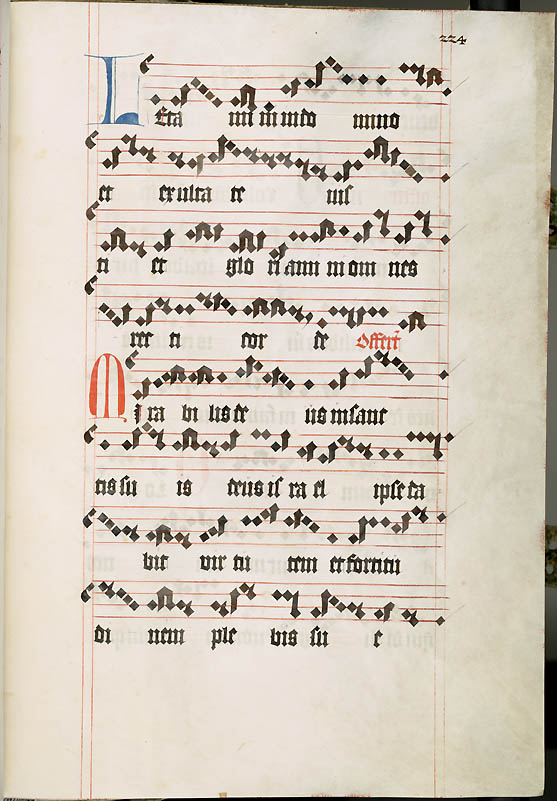 224
LEta mi ni in do mino
et ex ulta te ius
ti et glo ri ami ni om nes
rec ti cor de Offert
MIra bi lis de us in sanc
tis su is deus is ra el ipse da
bit vir tu tem et forti tu
di nem ple bis su e